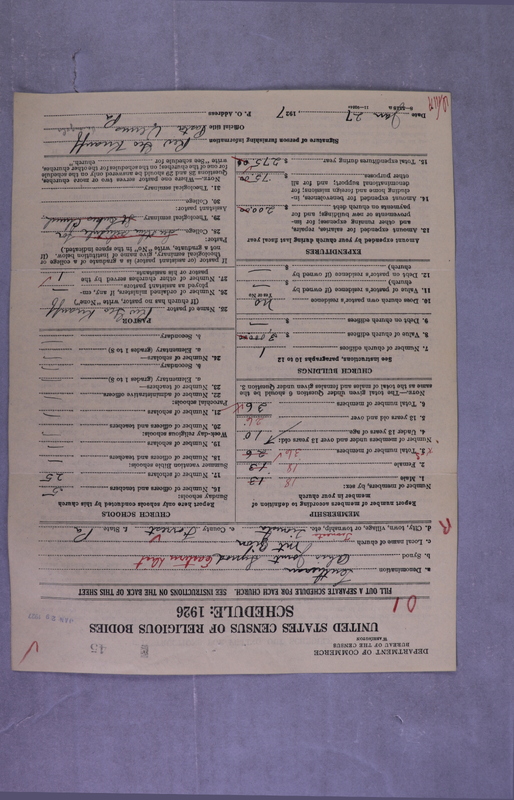 DEPARTMENT OF COMMERCE
BUREAU OF THE CENSUS
WASHINGTON
45
UNITED STATES CENSUS OF RELIGIOUS BODIES
SCHEDULE: 1926
01
FILL OUT A SEPARATE SCHEDULE FOR EACH CHURCH. SEE INSTRUCTIONS ON THE BACK OF THIS SHEET
a. Denomination Lutheran
b. Synod Ohio Joint Synod Eastern Dist
c. Local name of church Mt Zion
d. City, town, village, or township, etc.
e. County Forrest f. State Pa
R
MEMBERSHIP
Report number of members according to definition of member in your church
Number of members, by sex:
1. Male 13 18
2. Female 13 18
3. Total number of members 26 36
Number of members under and over 13 years old:
4. Under 13 years of age 10
5. 13 years old and over 26
6. Total number of members 36
NOTE.—The total given under Question 6 should be the same as the total of males and females given under Question 3.
CHURCH BUILDINGS
See Instructions, paragraphs 10 to 12
7. Number of church edifices 1
8. Value of church edifices $
9. Debt on church edifices $
10. Does your church own pastor's residence no
(Yes or No)
11. Value of pastor's residence (if owned by church) $
12. Debt on pastor's residence (if owned by church) $
EXPENDITURES
Amount expended by your church during last fiscal year
13. Amount expended for salaries, repairs, improvements or new buildings; and for payments on church debt and other running expenses $ 200.00
14. Amount expended for benevolences, including home and foreign missions; for denominational support; and for all other purposes $ 75.00
15. Total expenditures during year $ 275.00
CHURCH SCHOOLS
Report here only schools conducted by this church
Sunday schools:
16. Number of officers and teachers 2
17. Number of scholars 25
Summer vacation Bible schools:
18. Number of officers and teachers
19. Number of scholars
Week-day religious schools:
20. Number of officers and teachers
21. Number of scholars
Parochial schools:
22. Number of administrative officers
23. Number of teachers
a. Elementary (grades 1 to 8)
b. Secondary
24. Number of scholars
a. Elementary (grades 1 to 8)
b. Secondary
PASTOR
25. Name of pastor Rev Geo Knauff
(If church has no pastor, write "None")
26. Number of ordained ministers, if any, employed as assistant pastors
27. Number of other churches served by the pastor or his assistants 1
28. Is pastor or assistant pastor a graduate of college or theological seminary, give name of institution. (If not a graduate, write "No" in the space indicated.)
Pastor:
College
29. Theological seminary
Assistant pastor:
30. College
31. Theological seminary
NOTE.—Where one pastor serves two or more churches, Questions 28 and 29 should be answered only on the schedule for one of the churches; on the schedule for the other churches, write "See schedule for church."
Signature of person furnishing information Rev Geo Knauff
Official title Pastor
P. O. Address Pa
Date Jan 27, 1927